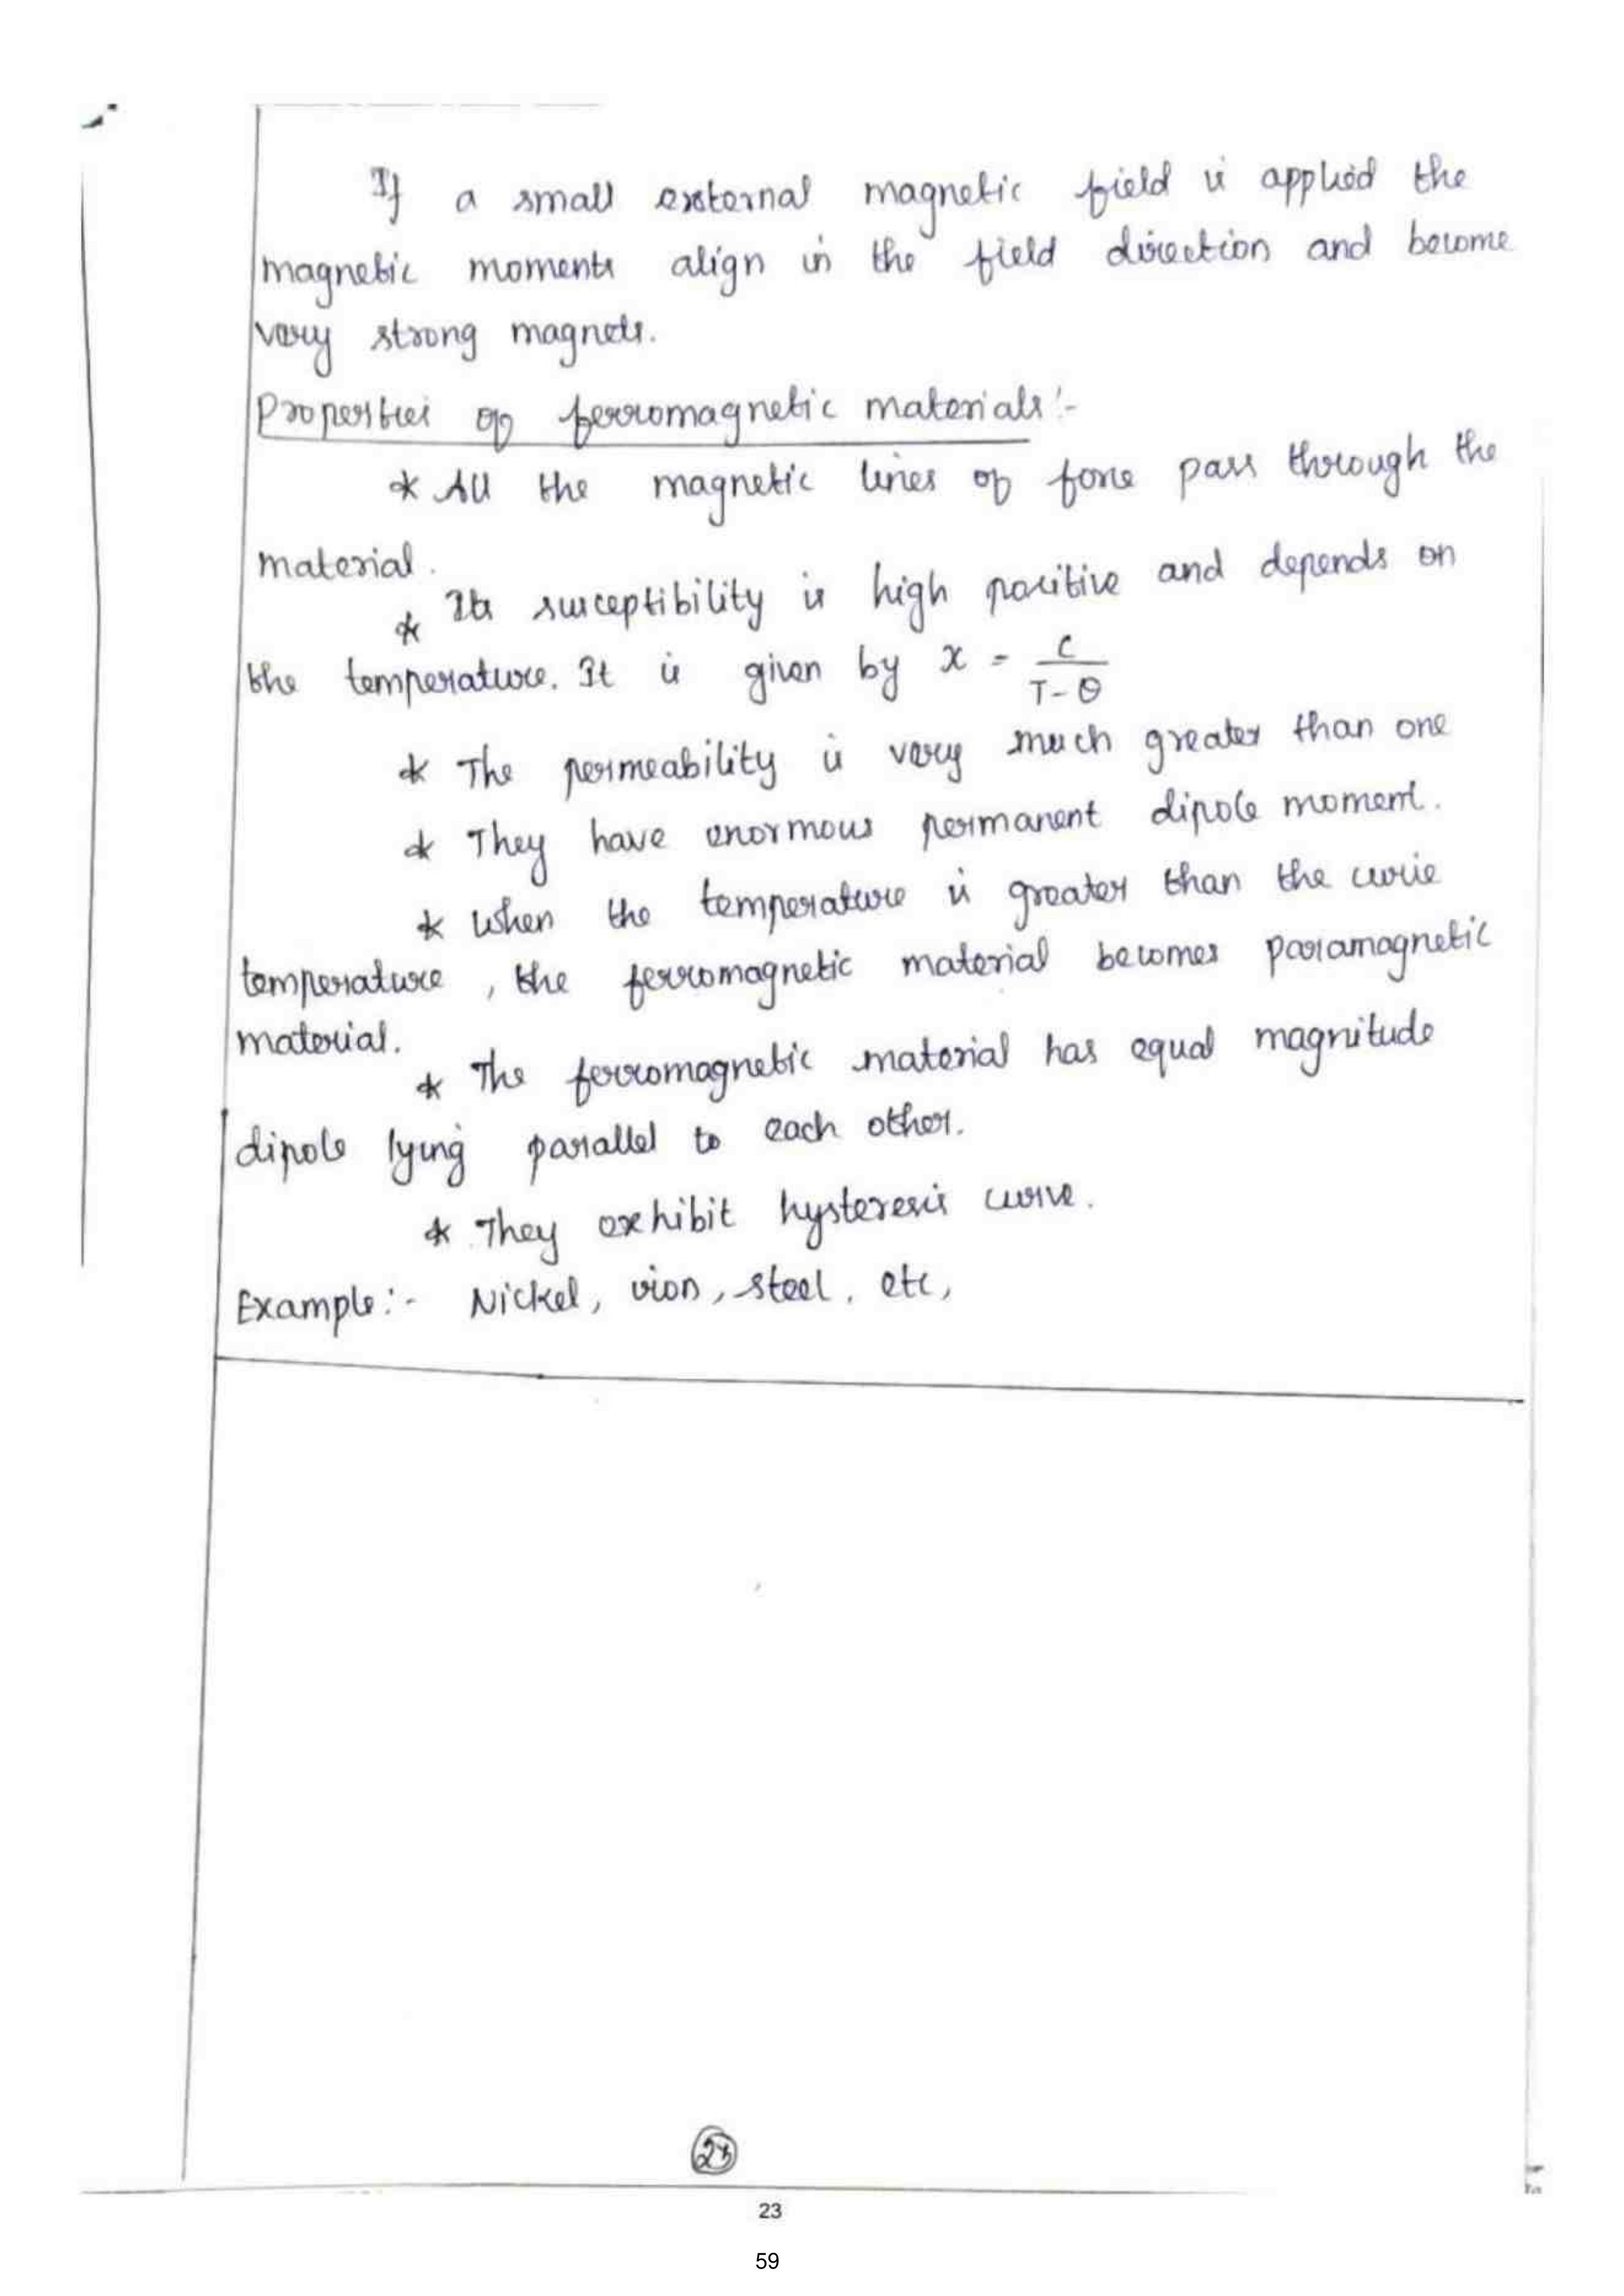 If a small external magnetic field is applied the
magnetic moments align in the field direction and become
very strong magnets.
Properties of ferromagnetic materials:-
* All the magnetic lines of force pass through the
material.
* Its susceptibility is high positive and depends on
the temperature. It is given by χ = C / T-θ
* The permeability is very much greater than one
* They have enormous permanent dipole moment.
* When the temperature is greater than the curie
temperature, the ferromagnetic material becomes paramagnetic
material.
* The ferromagnetic material has equal magnitude
dipole lying parallel to each other.
* They exhibit hysteresis curve.
Example:- Nickel, iron, steel, etc,
23
23
59